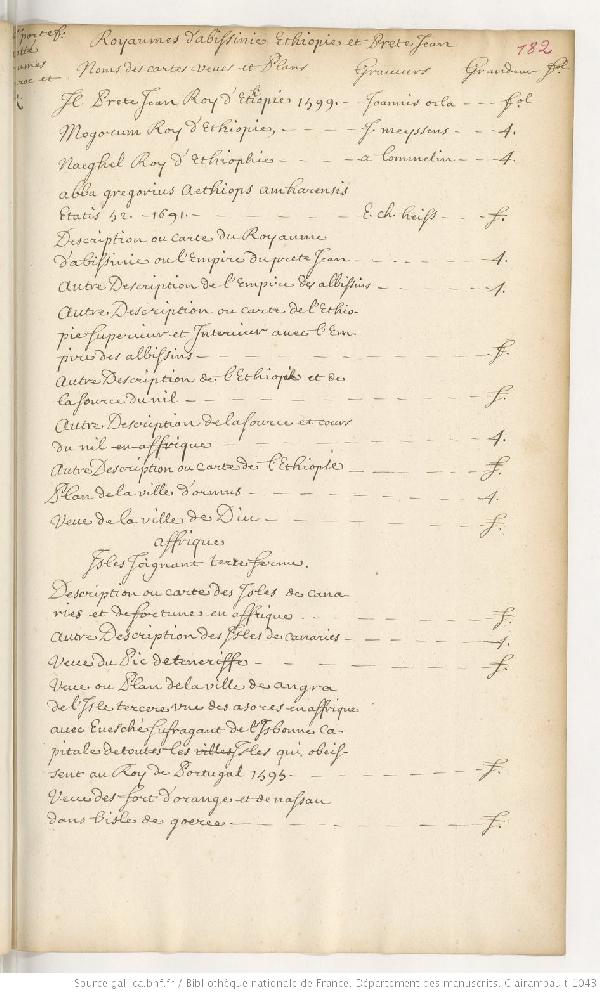 Royaumes d'abissinie Ethiopie et Prete Jean
182
Noms des cartes veues et Plans Graveurs Grandeur fol
Il Prete Jean Roy d'Etiopie 1599. - Joannis orla - - - fol
Mogorum Roy d'Ethiopie, - - - - J. meyssens - - - 4.
Naeghel Roy d'Ethiophie - - - - a lommelin - - 4.
abba gregorius Aethiops amharensis
Etatis 52. - 1691. - - - - - E. ch. heiss - - - f.
Description ou carte du Royaume
d'abissinie ou l'Empire du prete Jean - - - - - 4.
Autre Description de l'Empire des albissins - - - - 4.
Autre Description ou carte de l'Ethio-
pie superieur et Interieur avec l'Em-
pire des albissins - - - - - - - - f.
Autre Description de l'Ethiopie et de
la source du nil - - - - - - - - f.
Autre Description de la source et cours
du nil en affrique - - - - - - - 4.
Autre Description ou carte de l'Ethiopie - - - - f.
Plan de la ville d'ormus - - - - - - - 4.
Veue de la ville de Diu - - - - - - - f.
affrique
Isles Joignant terre ferme.
Description ou carte des Isles de cana
ries et de fortune en affrique - - - - - f.
Autre Description des Isles de canaries - - - - - 4.
Veue du Pic de teneriffe - - - - - - - f.
Veue ou Plan de la ville de angra
de l'Isle tercere une des asores en affrique
avec Evesché sufragant de Lisbonne Ca-
pitale de toutes les villes Isles qui obeis-
sent au Roy de Portugal 1595 - - - - - - f.
Veue des fort d'orange et de nassau
dans l'isle de goeree - - - - - - - f.
Source gallica.bnf.fr / Bibliothèque nationale de France. Département des manuscrits. Clairambault 1043